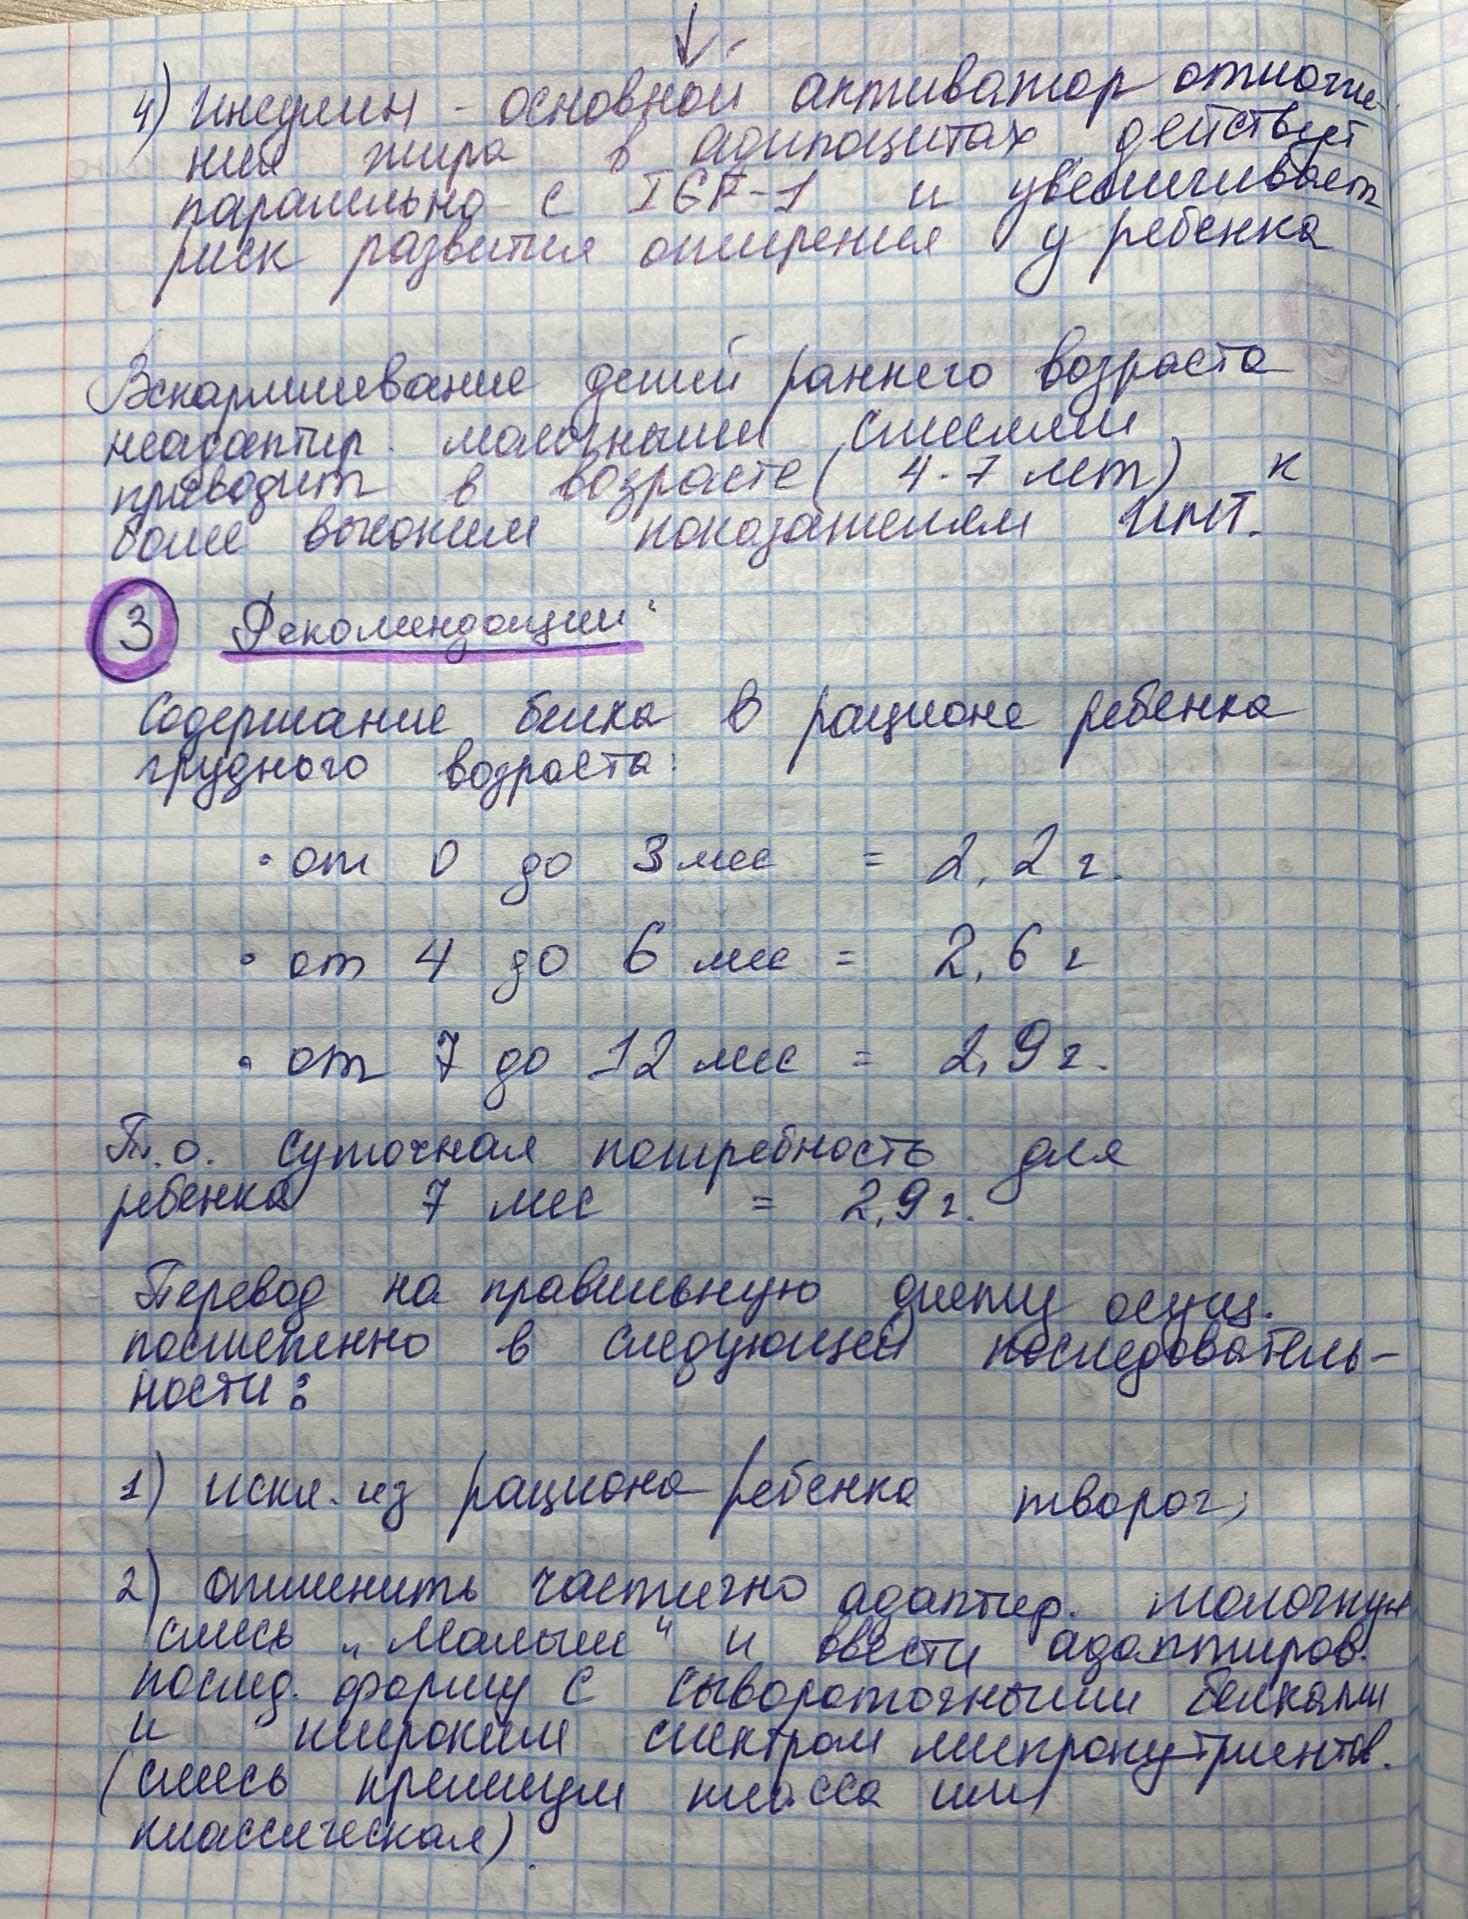 4) Инсулин - основной активатор отложе-
ния жира в адипоцитах действует
паралельно с IGF-1 и увеличивает
риск развития ожирения у ребенка
Вскармливание детей раннего возраста
неадаптир. молочными смесями
приводит в возрасте (4-7 лет) к
более высоким показателям ИМТ.
3 Рекомендации:
Содержание белка в рационе ребенка
грудного возраста:
• от 0 до 3 мес = 2,2 г.
• от 4 до 6 мес = 2,6 г
• от 7 до 12 мес = 2,9 г.
Т.о. суточная потребность для
ребенка 7 мес = 2,9 г.
Перевод на правильную диету осущ.
постепенно в следующей последователь-
ности:
1) искл. из рациона ребенка творог;
2) отменить частично адаптир. молочную
смесь „Малыш" и ввести адаптиров.
послед. формулу с сывороточными белками
и широким спектром микронутриентов.
(смесь премиум класса или
классическая).